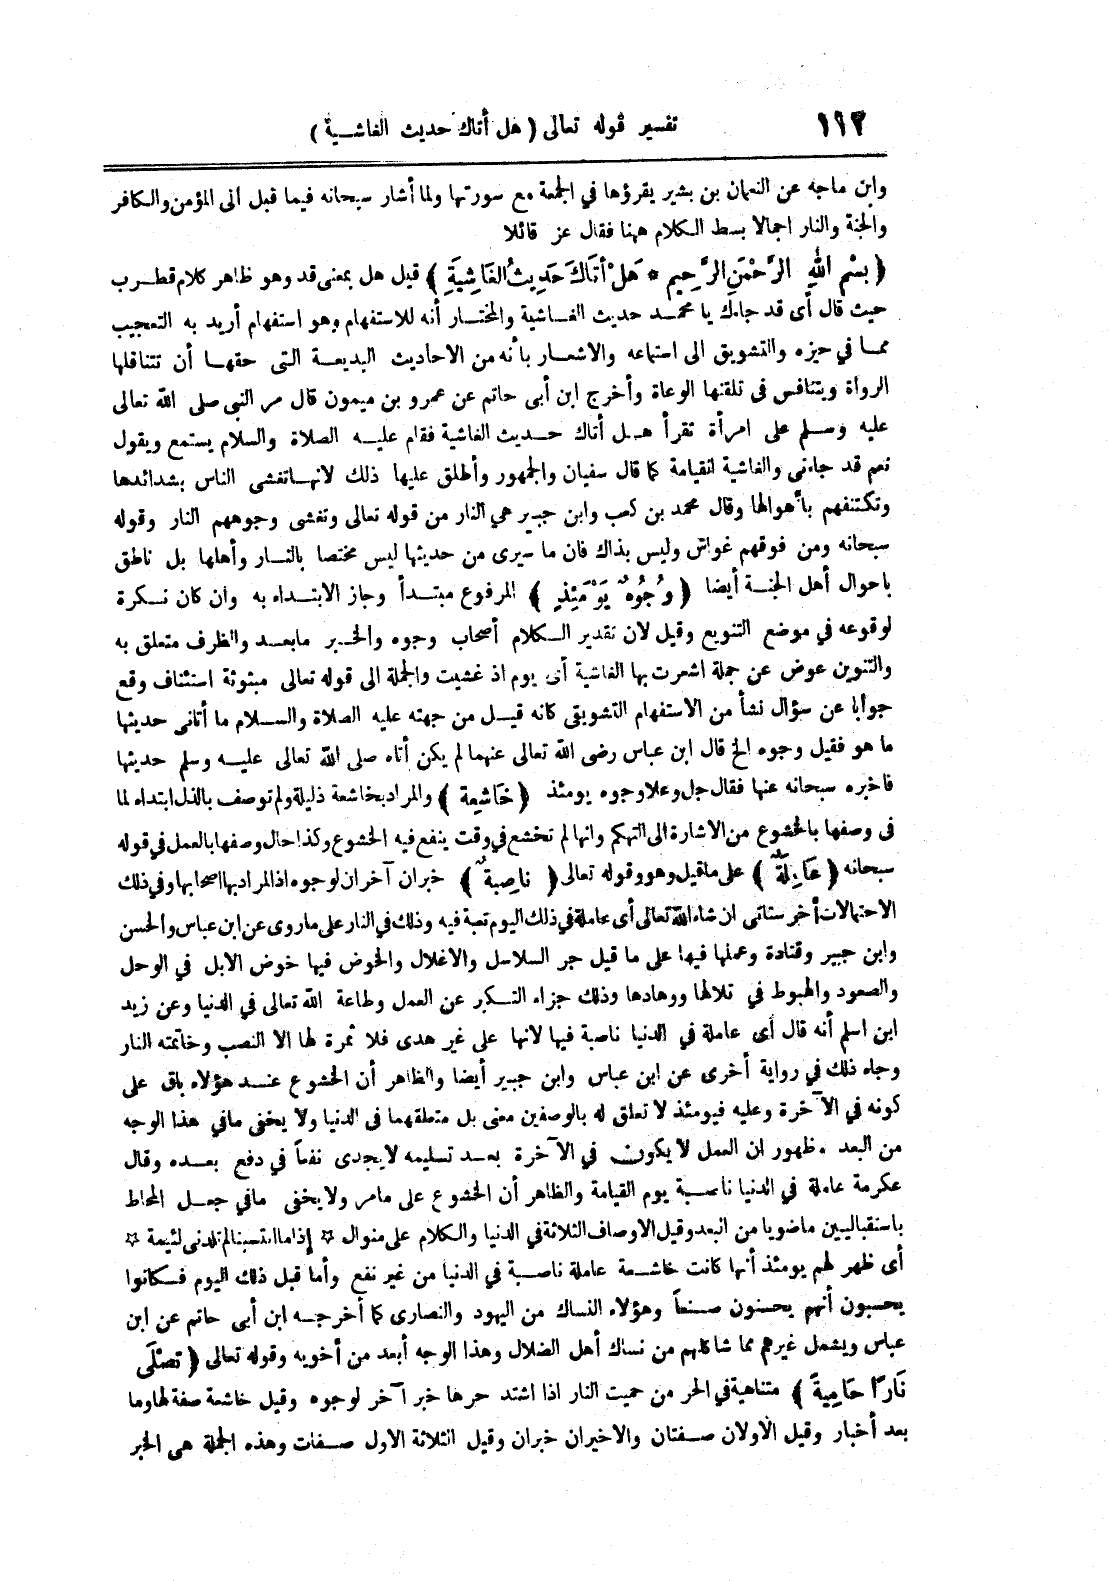 ١١٢ تفسير قوله تعالى ( هل أتاك حديث الغاشية )
وابن ماجه عن النعمان بن بشير يقرؤها في الجمعة مع سورتها ولما أشار سبحانه فيما قبل الى المؤمن والكافر
والجنة والنار اجمالا بسط الكلام ههنا فقال عز قائلا
﴿ بِسْمِ اللهِ الرَّحْمَنِ الرَّحِيمِ * هَلْ أَتَاكَ حَدِيثُ الغَاشِيَةِ ﴾ قيل هل بمعنى قد وهو ظاهر كلام قطرب
حيث قال أى قد جاءك يا محمد حديث الغاشية والمختار أنه للاستفهام وهو استفهام أريد به التعجيب
مما في حيزه والتشويق الى استماعه والاشعار بأنه من الاحاديث البديعة التى حقها أن تتناقلها
الرواة ويتنافس فى تلقنها الوعاة وأخرج ابن أبى حاتم عن عمرو بن ميمون قال مر النبى صلى الله تعالى
عليه وسلم على امرأة تقرأ هل أتاك حديث الغاشية فقام عليه الصلاة والسلام يستمع ويقول
نعم قد جاءنى والغاشية القيامة كما قال سفيان والجمهور وأطلق عليها ذلك لانها تغشى الناس بشدائدها
وتكتنفهم بأهوالها وقال محمد بن كعب وابن جبير هي النار من قوله تعالى وتغشى وجوههم النار وقوله
سبحانه ومن فوقهم غواش وليس بذاك فان ما سيرى من حديثها ليس مختصا بالنار وأهلها بل ناطق
باحوال أهل الجنة أيضا ﴿ وُجُوهٌ يَوْمَئِذٍ ﴾ المرفوع مبتدأ وجاز الابتداء به وان كان نكرة
لوقوعه في موضع التنويع وقيل لان تقدير الكلام أصحاب وجوه والخبر ما بعد والظرف متعلق به
والتنوين عوض عن جملة اشعرت بها الغاشية أى يوم اذ غشيت والجملة الى قوله تعالى مبثوثة استئناف وقع
جوابا عن سؤال نشأ من الاستفهام التشويقى كانه قيل من جهته عليه الصلاة والسلام ما أتانى حديثها
ما هو فقيل وجوه الخ قال ابن عباس رضى الله تعالى عنهما لم يكن أتاه صلى الله تعالى عليه وسلم حديثها
فاخبره سبحانه عنها فقال جل وعلا وجوه يومئذ ﴿ خَاشِعة ﴾ والمراد بخاشعة ذليلة ولم توصف بالذل ابتداء لما
فى وصفها بالخشوع من الاشارة الى التهكم وانها لم تخشع في وقت ينفع فيه الخشوع وكذا حال وصفها بالعمل في قوله
سبحانه ﴿ عَامِلَةٌ ﴾ على ما قيل وهو وقوله تعالى ﴿ ناصِبةٌ ﴾ خبران آخران لوجوه اذ المراد بها اصحابها وفي ذلك
الاحتمالات أخر ستاتى ان شاء الله تعالى أى عاملة في ذلك اليوم تعبة فيه وذلك في النار على ما روى عن ابن عباس والحسن
وابن جبير وقتادة وعملها فيها على ما قيل جر السلاسل والاغلال والخوض فيها خوض الابل في الوحل
والصعود والهبوط في تلالها ووهادها وذلك جزاء التكبر عن العمل وطاعة الله تعالى في الدنيا وعن زيد
ابن اسلم أنه قال أى عاملة في الدنيا ناصبة فيها لانها على غير هدى فلا ثمرة لها الا النصب وخاتمته النار
وجاء ذلك في رواية أخرى عن ابن عباس وابن جبير أيضا والظاهر أن الخشوع عند هؤلاء باق على
كونه في الآخرة وعليه فيومئذ لا تعلق له بالوصفين معنى بل متعلقهما فى الدنيا ولا يخفى مافي هذا الوجه
من البعد . ظهور ان العمل لا يكون في الآخرة بعد تسليمه لا يجدى نفعاً في دفع بعده وقال
عكرمة عاملة في الدنيا ناصبة يوم القيامة والظاهر أن الخشوع على مامر ولا يخفى مافي جعل المحاط
باستقباليين ماضويا من البعد وقيل الاوصاف الثلاثة في الدنيا والكلام على منوال ☆ إذا ما انتسبنا لم تلدنى لئيمة ☆
أى ظهر لهم يومئذ أنها كانت خاشعة عاملة ناصبة في الدنيا من غير نفع وأما قبل ذلك اليوم فكانوا
يحسبون أنهم يحسنون صنعاً وهؤلاء النساك من اليهود والنصارى كما أخرجه ابن أبى حاتم عن ابن
عباس ويشمل غيرهم مما شاكلهم من نساك أهل الضلال وهذا الوجه أبعد من أخويه وقوله تعالى ﴿ تَصْلَى
نَارًا حَامِيةً ﴾ متناهية في الحر من حميت النار اذا اشتد حرها خبر آخر لوجوه وقيل خاشعة صفة لها وما
بعد أخبار وقيل الأولان صفتان والاخيران خبران وقيل الثلاثة الاول صفات وهذه الجملة هى الخبر